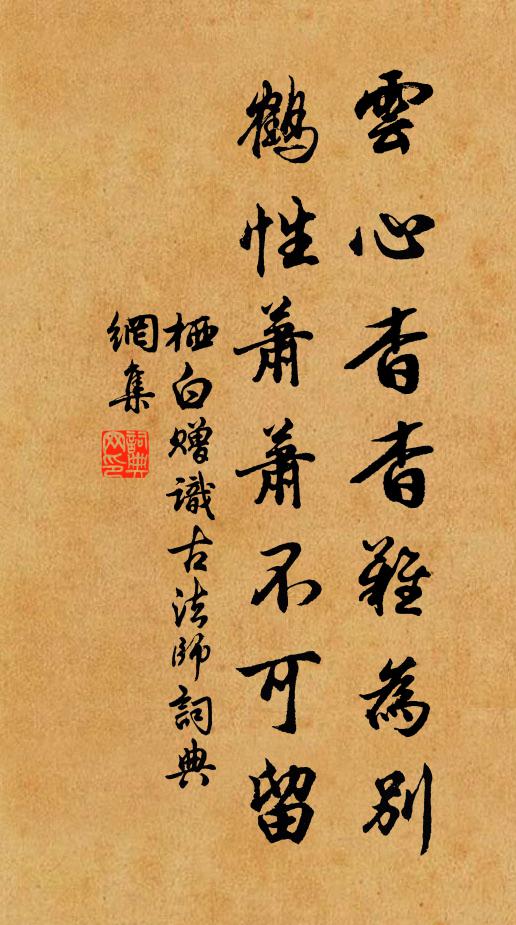 雲心杳杳難為別
鶴性蕭蕭不可留
栖白贈識古法師詞典
網集
詞典
网印